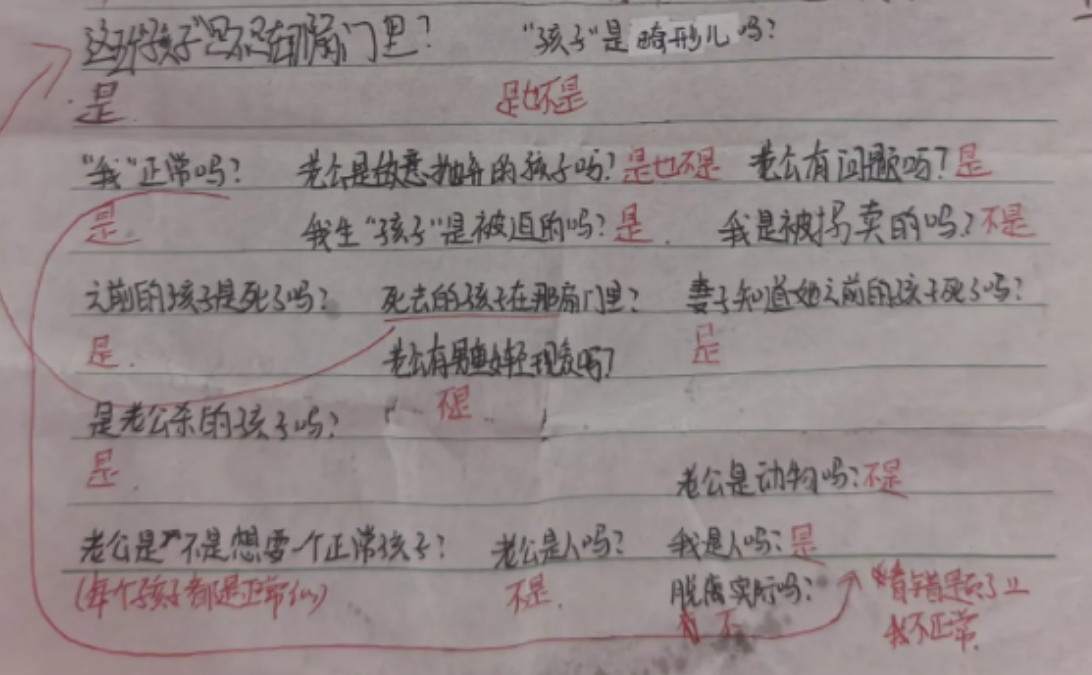 这些"孩子"是不是在那扇门里? "孩子"是畸形儿吗?
是. 是也不是
"我"正常吗? 老公是故意抛弃的孩子吗?是也不是 老公有问题吗?是
是. 我生"孩子"是被迫的吗?是. 我是被拐卖的吗?不是
之前的孩子是死了吗? 死去的孩子在那扇门里? 妻子知道她之前的孩子死了吗?
是. 老公有男女轻观念吗? 是
是老公杀的孩子吗? 不是
是. 老公是动物吗?不是
老公是不是想要一个正常孩子? 老公是人吗? 我是人吗?是
(每个孩子都是正常的) 不是. 脱离实际吗? 看错是的了
不 我不正常.